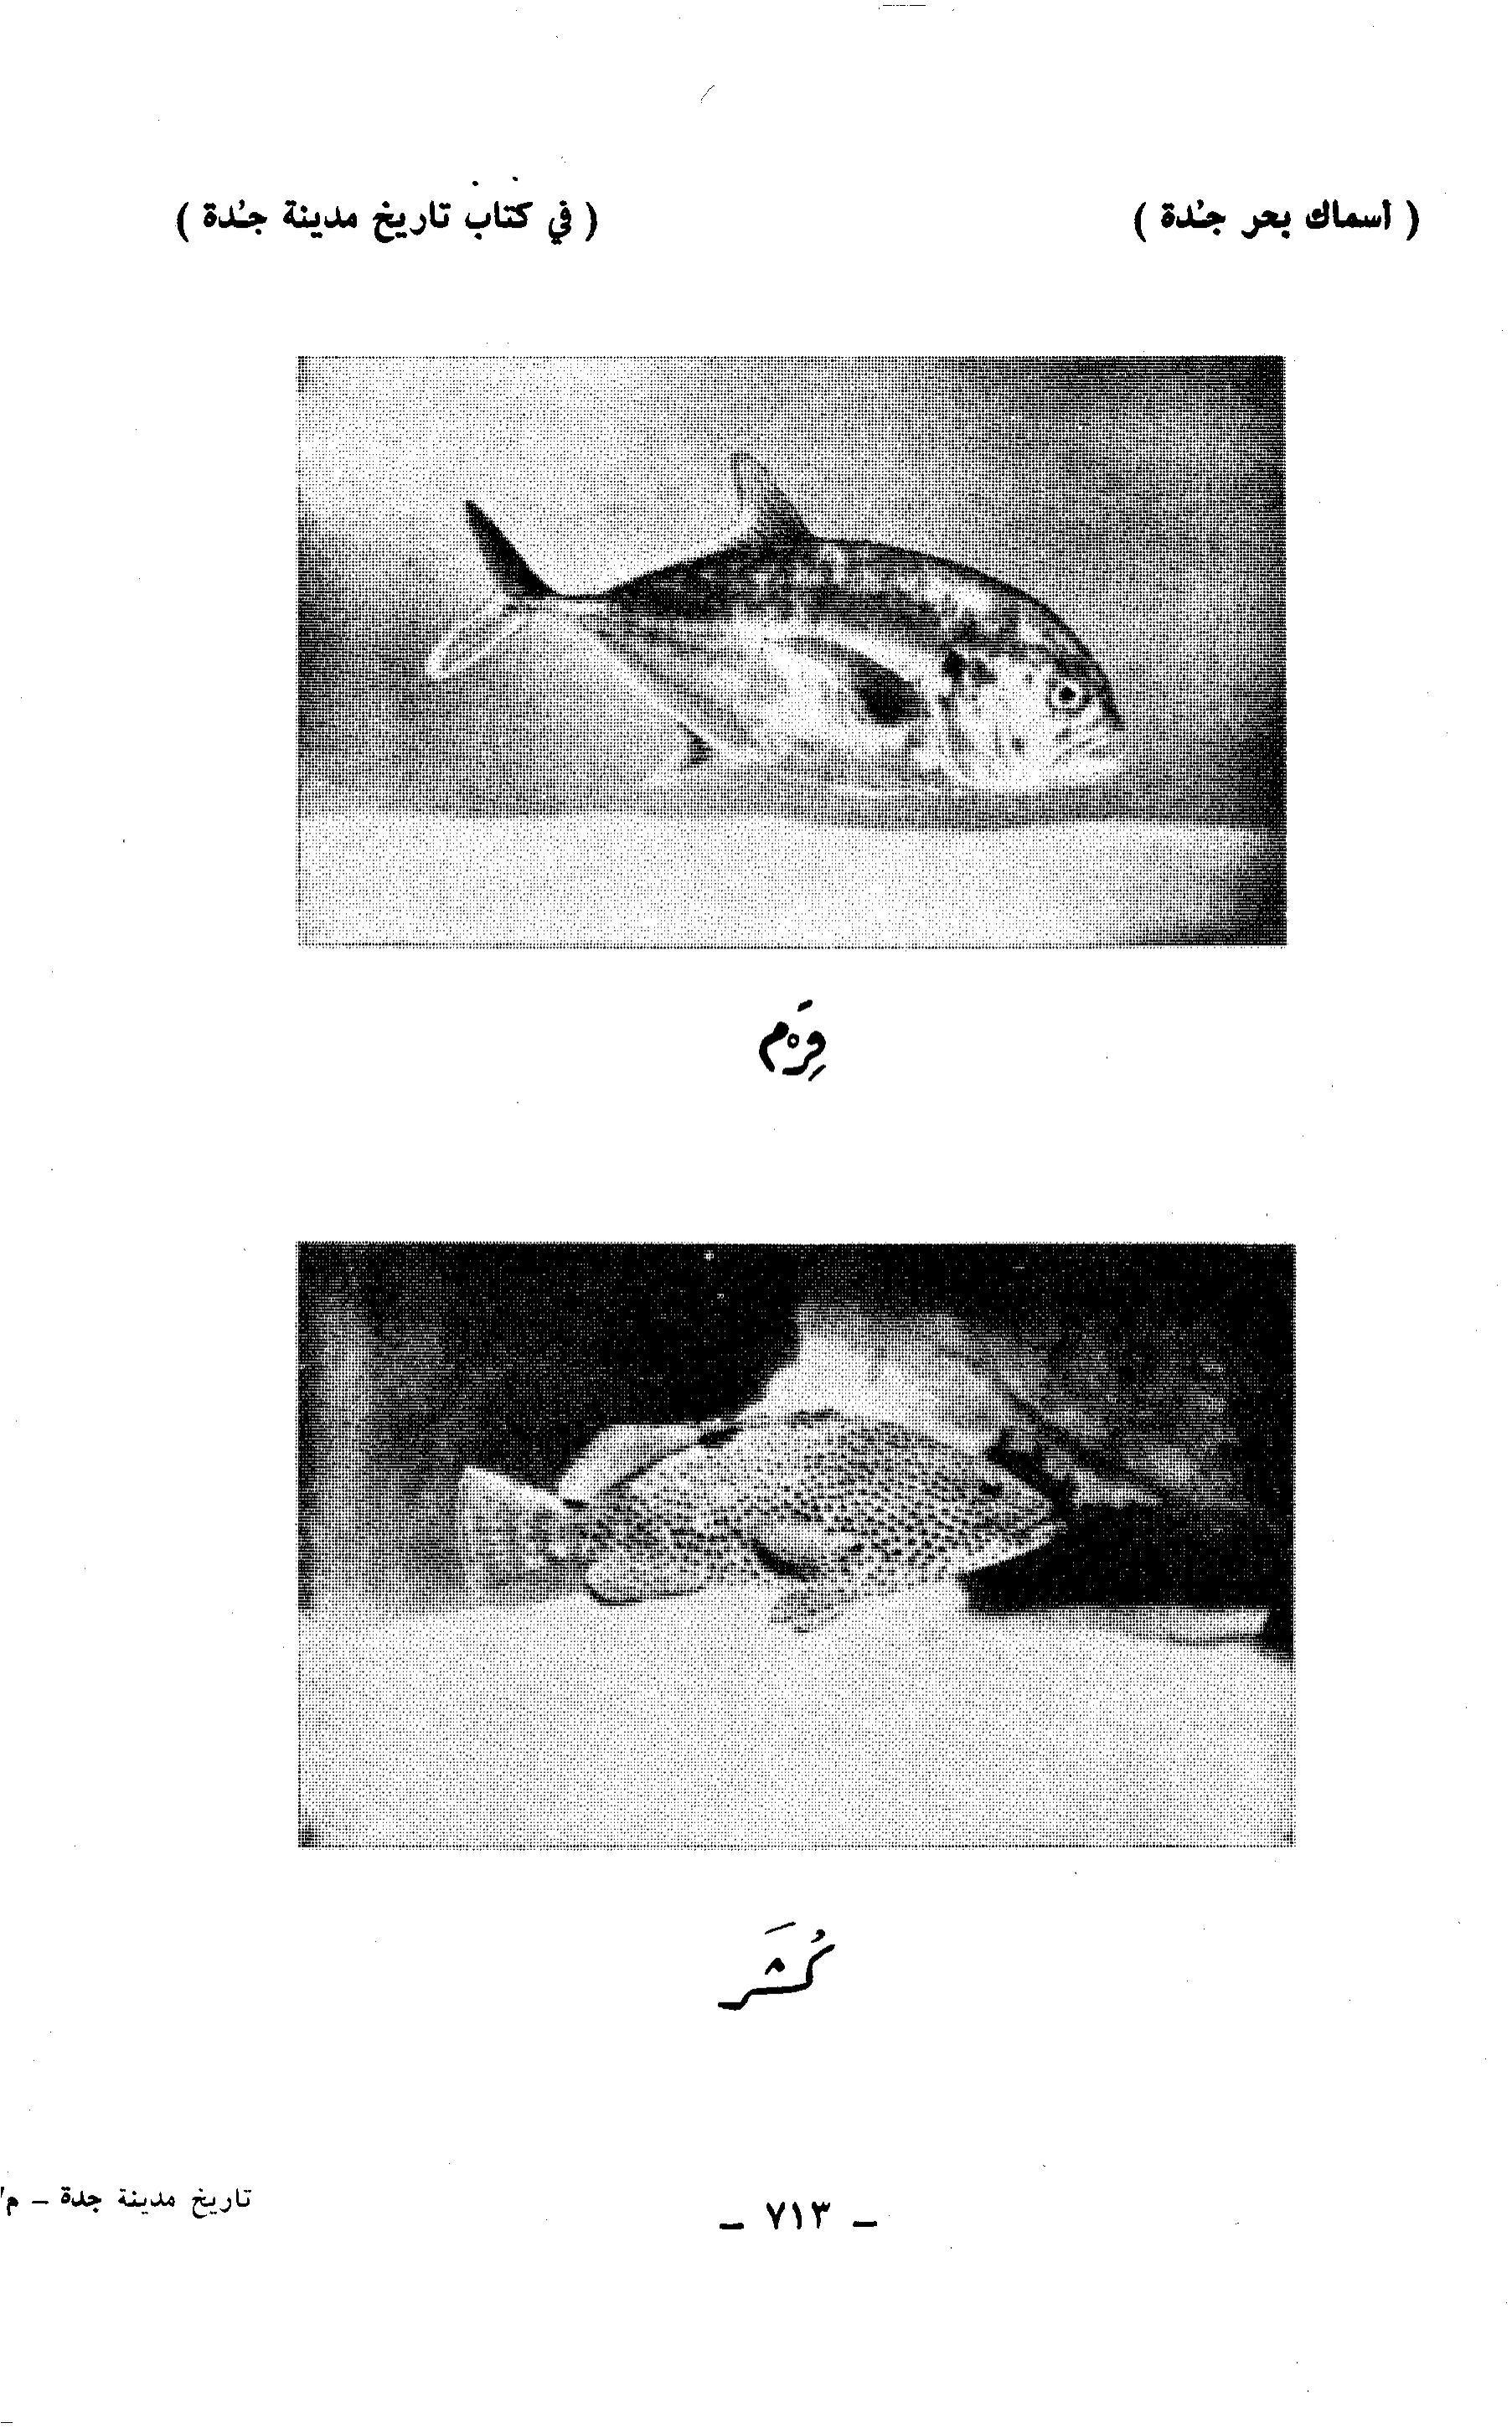 ( أسماك بحر جُدة ) ( في كتاب تاريخ مدينة جُدة )
قِرْم
كُشَر
— ٧١٣ —
تاريخ مدينة جدة — م